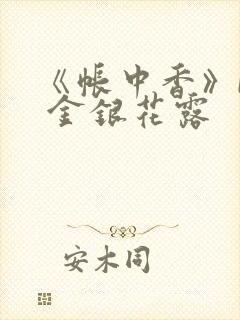 《帐中香》
金银花露
安木同